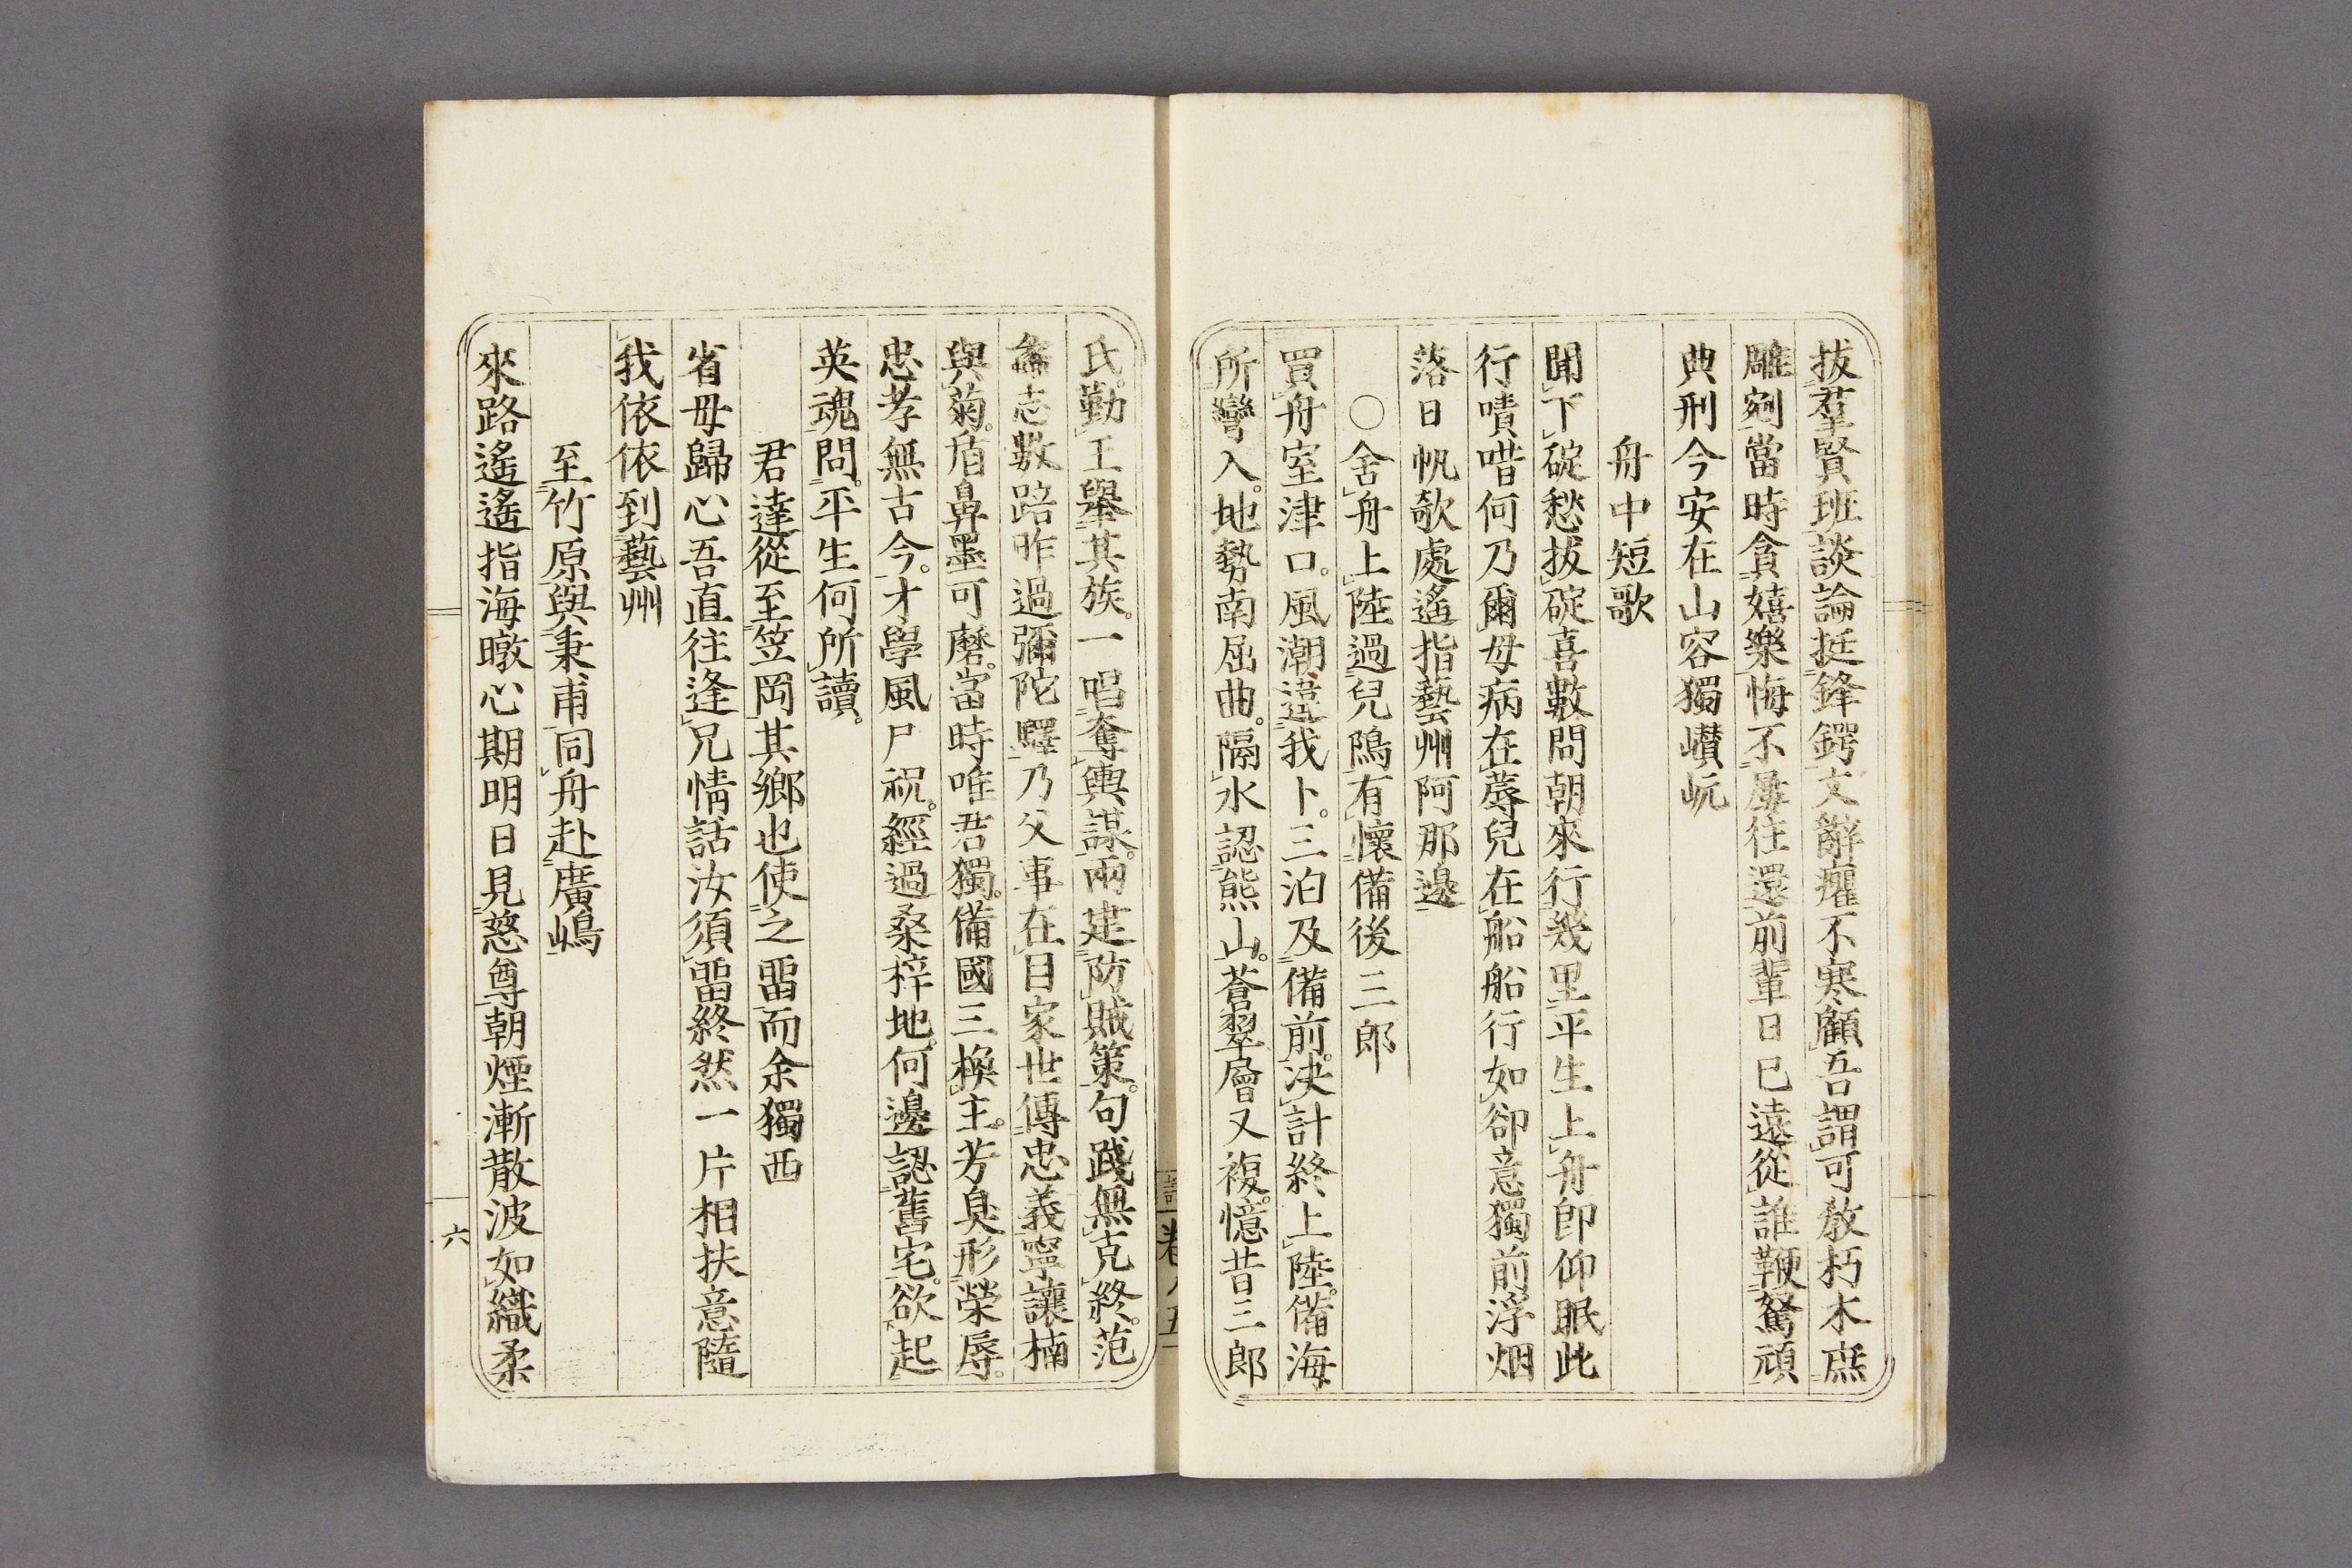 拔羣賢班談論挺鋒鍔文辭癯不寒顧吾謂可教朽木庶
雕剜當時貪嬉樂悔不屢往還前輩日已遠從誰鞭駑頑
典刑今安在山容獨巑岏
舟中短歌
聞下碇愁拔碇喜數問朝來行幾里平生上舟即仰眠此
行嘖唶何乃爾母病在蓐兒在船船行如卻意獨前浮烟
落日帆欹處遙指藝州阿那邊
○舍舟上陸過兒隝有懷備後三郎
買舟室津口。風潮違我卜。三泊及備前。決計終上陸。備海
所彎入。地勢南屈曲。隔水認熊山。蒼翠層又複。憶昔三郎
氏。勤王舉其族。一唱奪輿謀。兩建防賊策。句踐無克終。范
蠡志數踣昨過彌陀驛乃父事在目家世傳忠義寧讓楠
與菊。盾鼻墨可磨。當時唯君獨。備國三換主。芳臭形榮辱。
忠孝無古今。才學風尸祝。經過桑梓地。何邊認舊宅。欲起
英魂問。平生何所讀。
君達從至笠岡其鄉也使之畱而余獨西
省母歸心吾直往逢兄情話汝須畱終然一片相扶意隨
我依依到藝州
至竹原與秉甫同舟赴廣嶋
來路遙遙指海暾心期明日見慈尊朝煙漸散波如織柔
卷
五
六